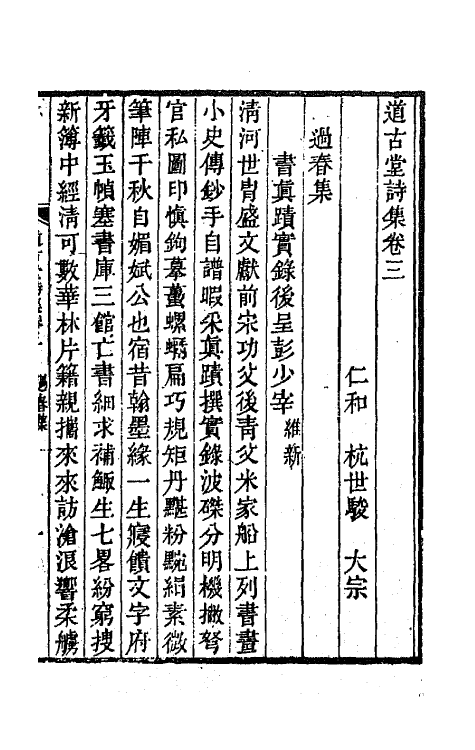 道古堂詩集卷三
仁和　杭世駿　大宗
過春集
書眞蹟實錄後呈彭少宰維新
淸河世胄盛文獻前宋功父後靑父米家船上列書畫
小史傳鈔手自譜暇采眞蹟撰實錄波磔分明機撇弩
官私圖印愼鉤摹蠆螺蠣扁巧規矩丹黮粉黦絹素微
筆陣千秋自媚娬公也宿昔翰墨緣一生寢饋文字府
牙籤玉幀塞書庫三館亡書細求補鯫生七畧紛窮搜
新簿中經淸可數華林片籍親攜來來訪滄浪響柔艣